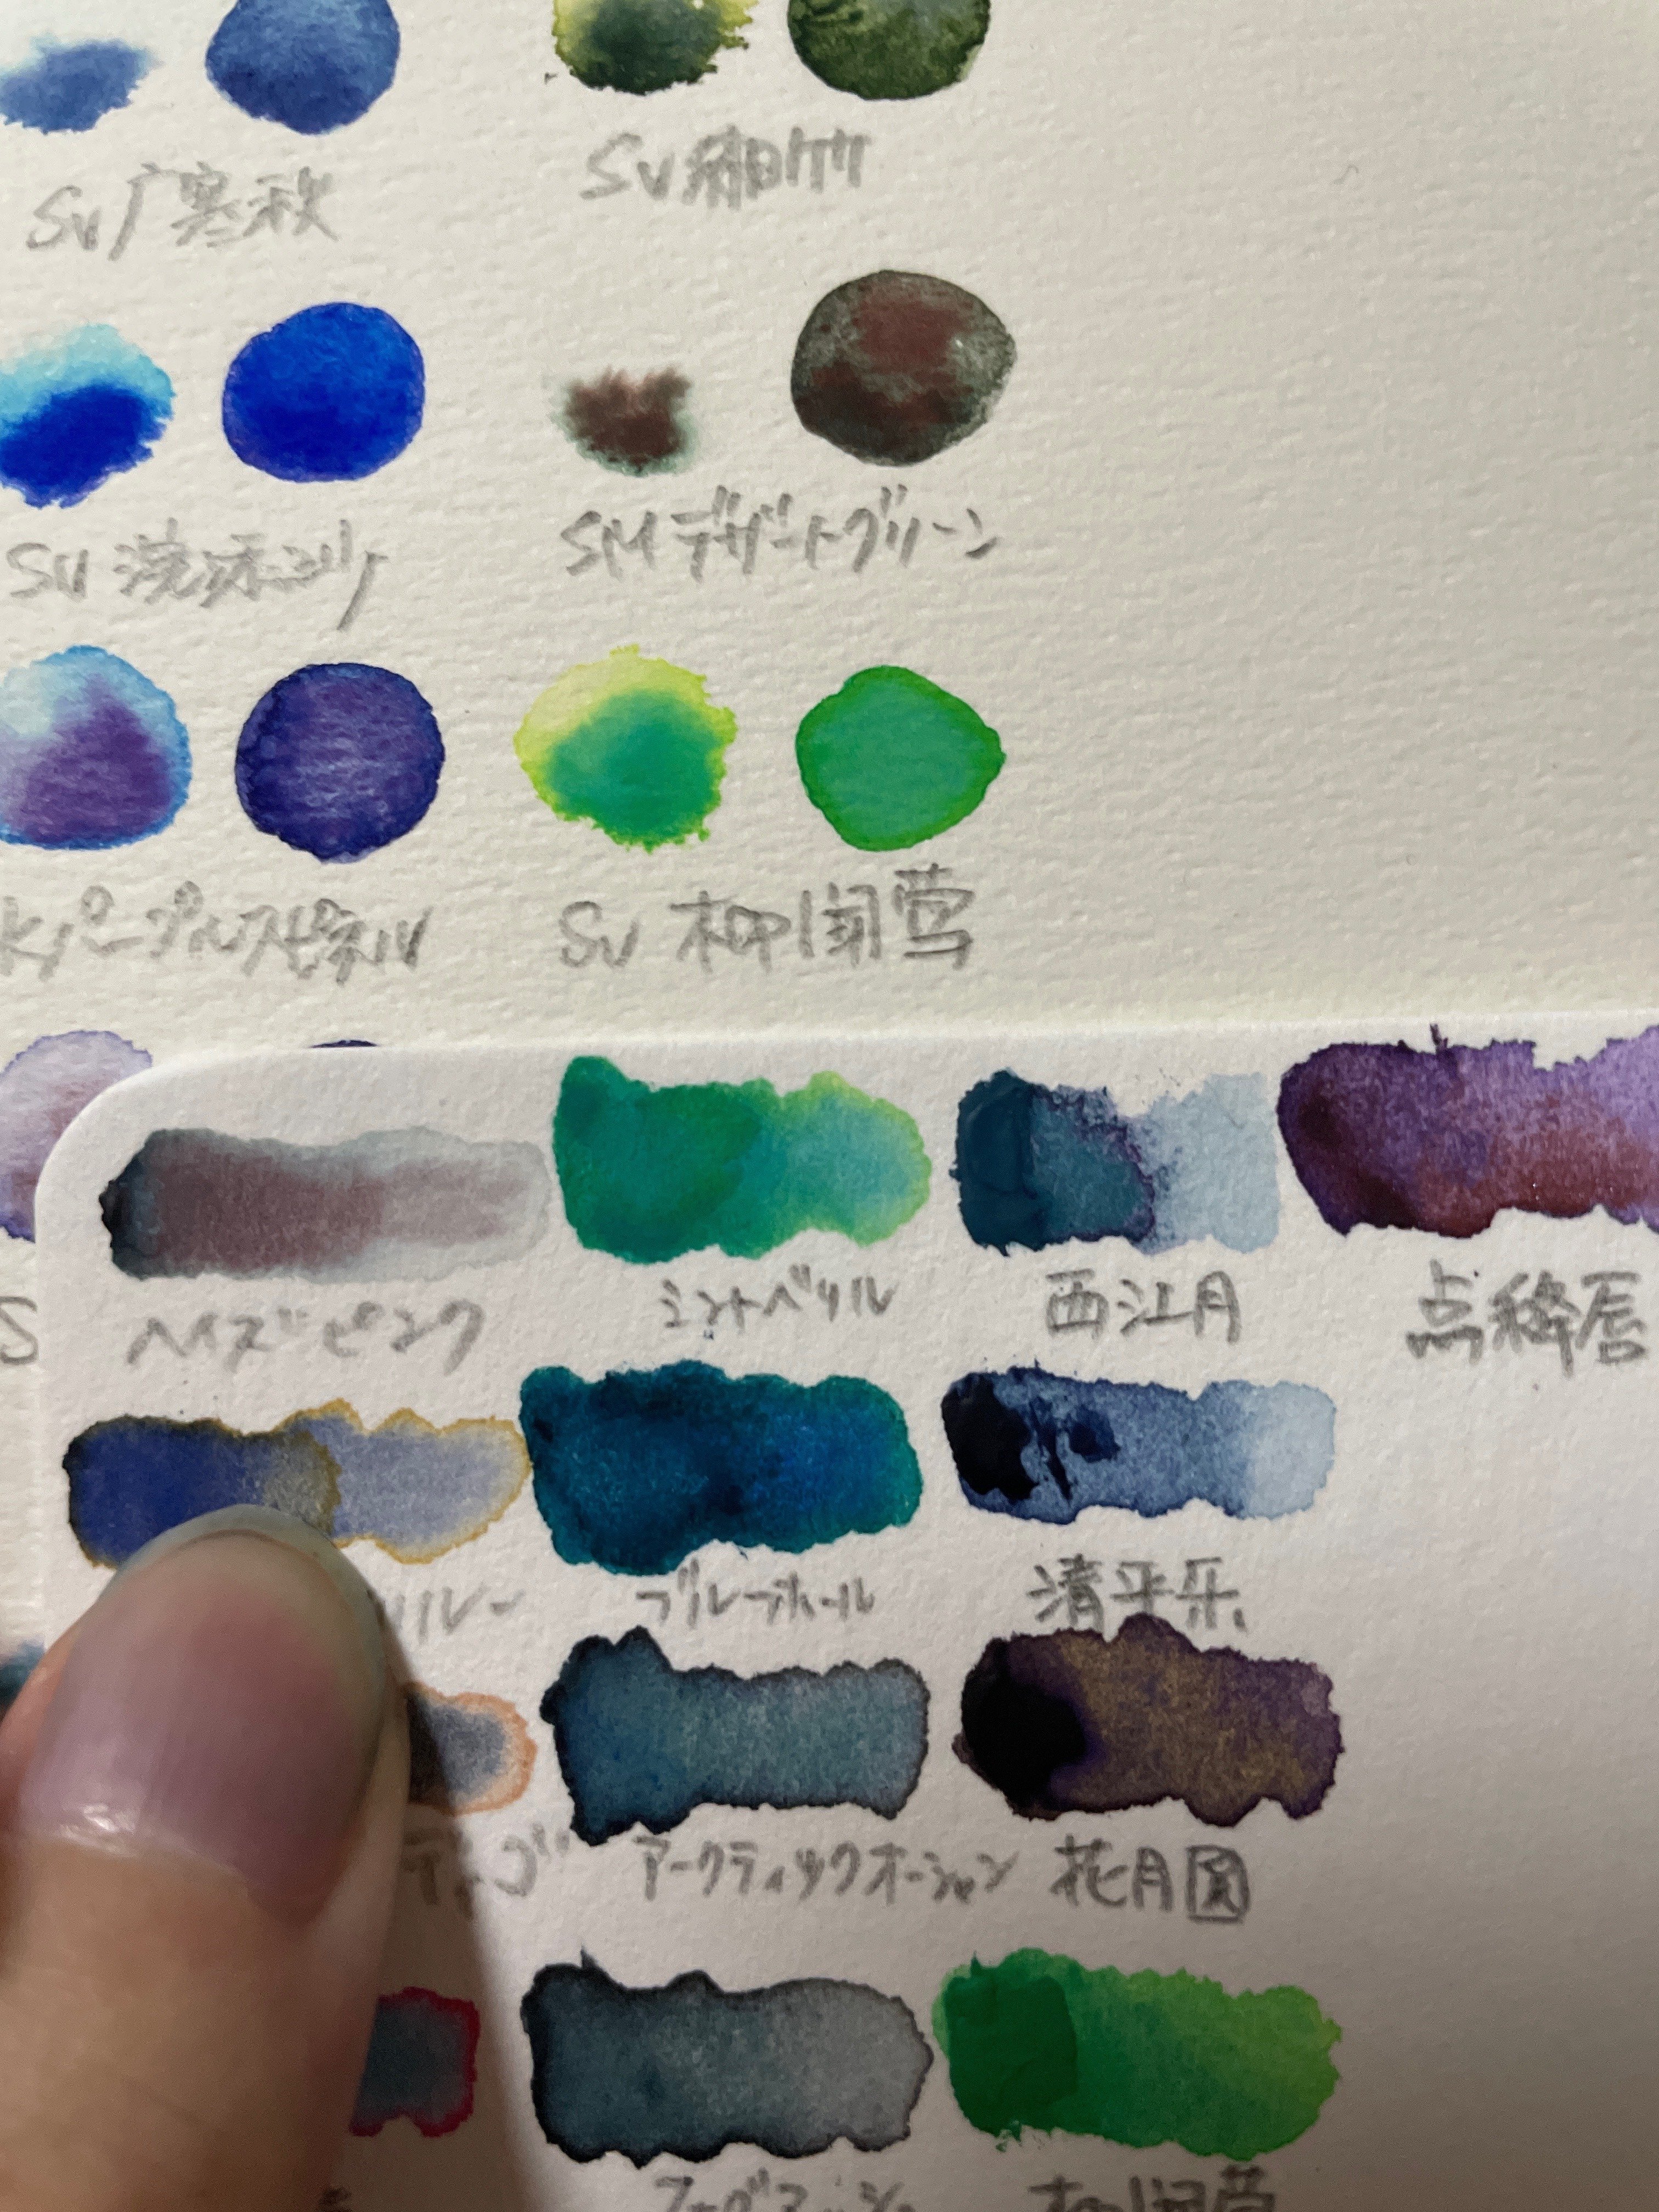 SV 广寒秋
SV 緗竹
SV 浣渓沙
SM デザートグリーン
K パープルスピネル
SV 柳闻莺
S
ヘイズピンク
ミントベリル
西江月
点絳唇
ブルーホール
清平乐
アークティックオーシャン
花月圆
柳闻莺